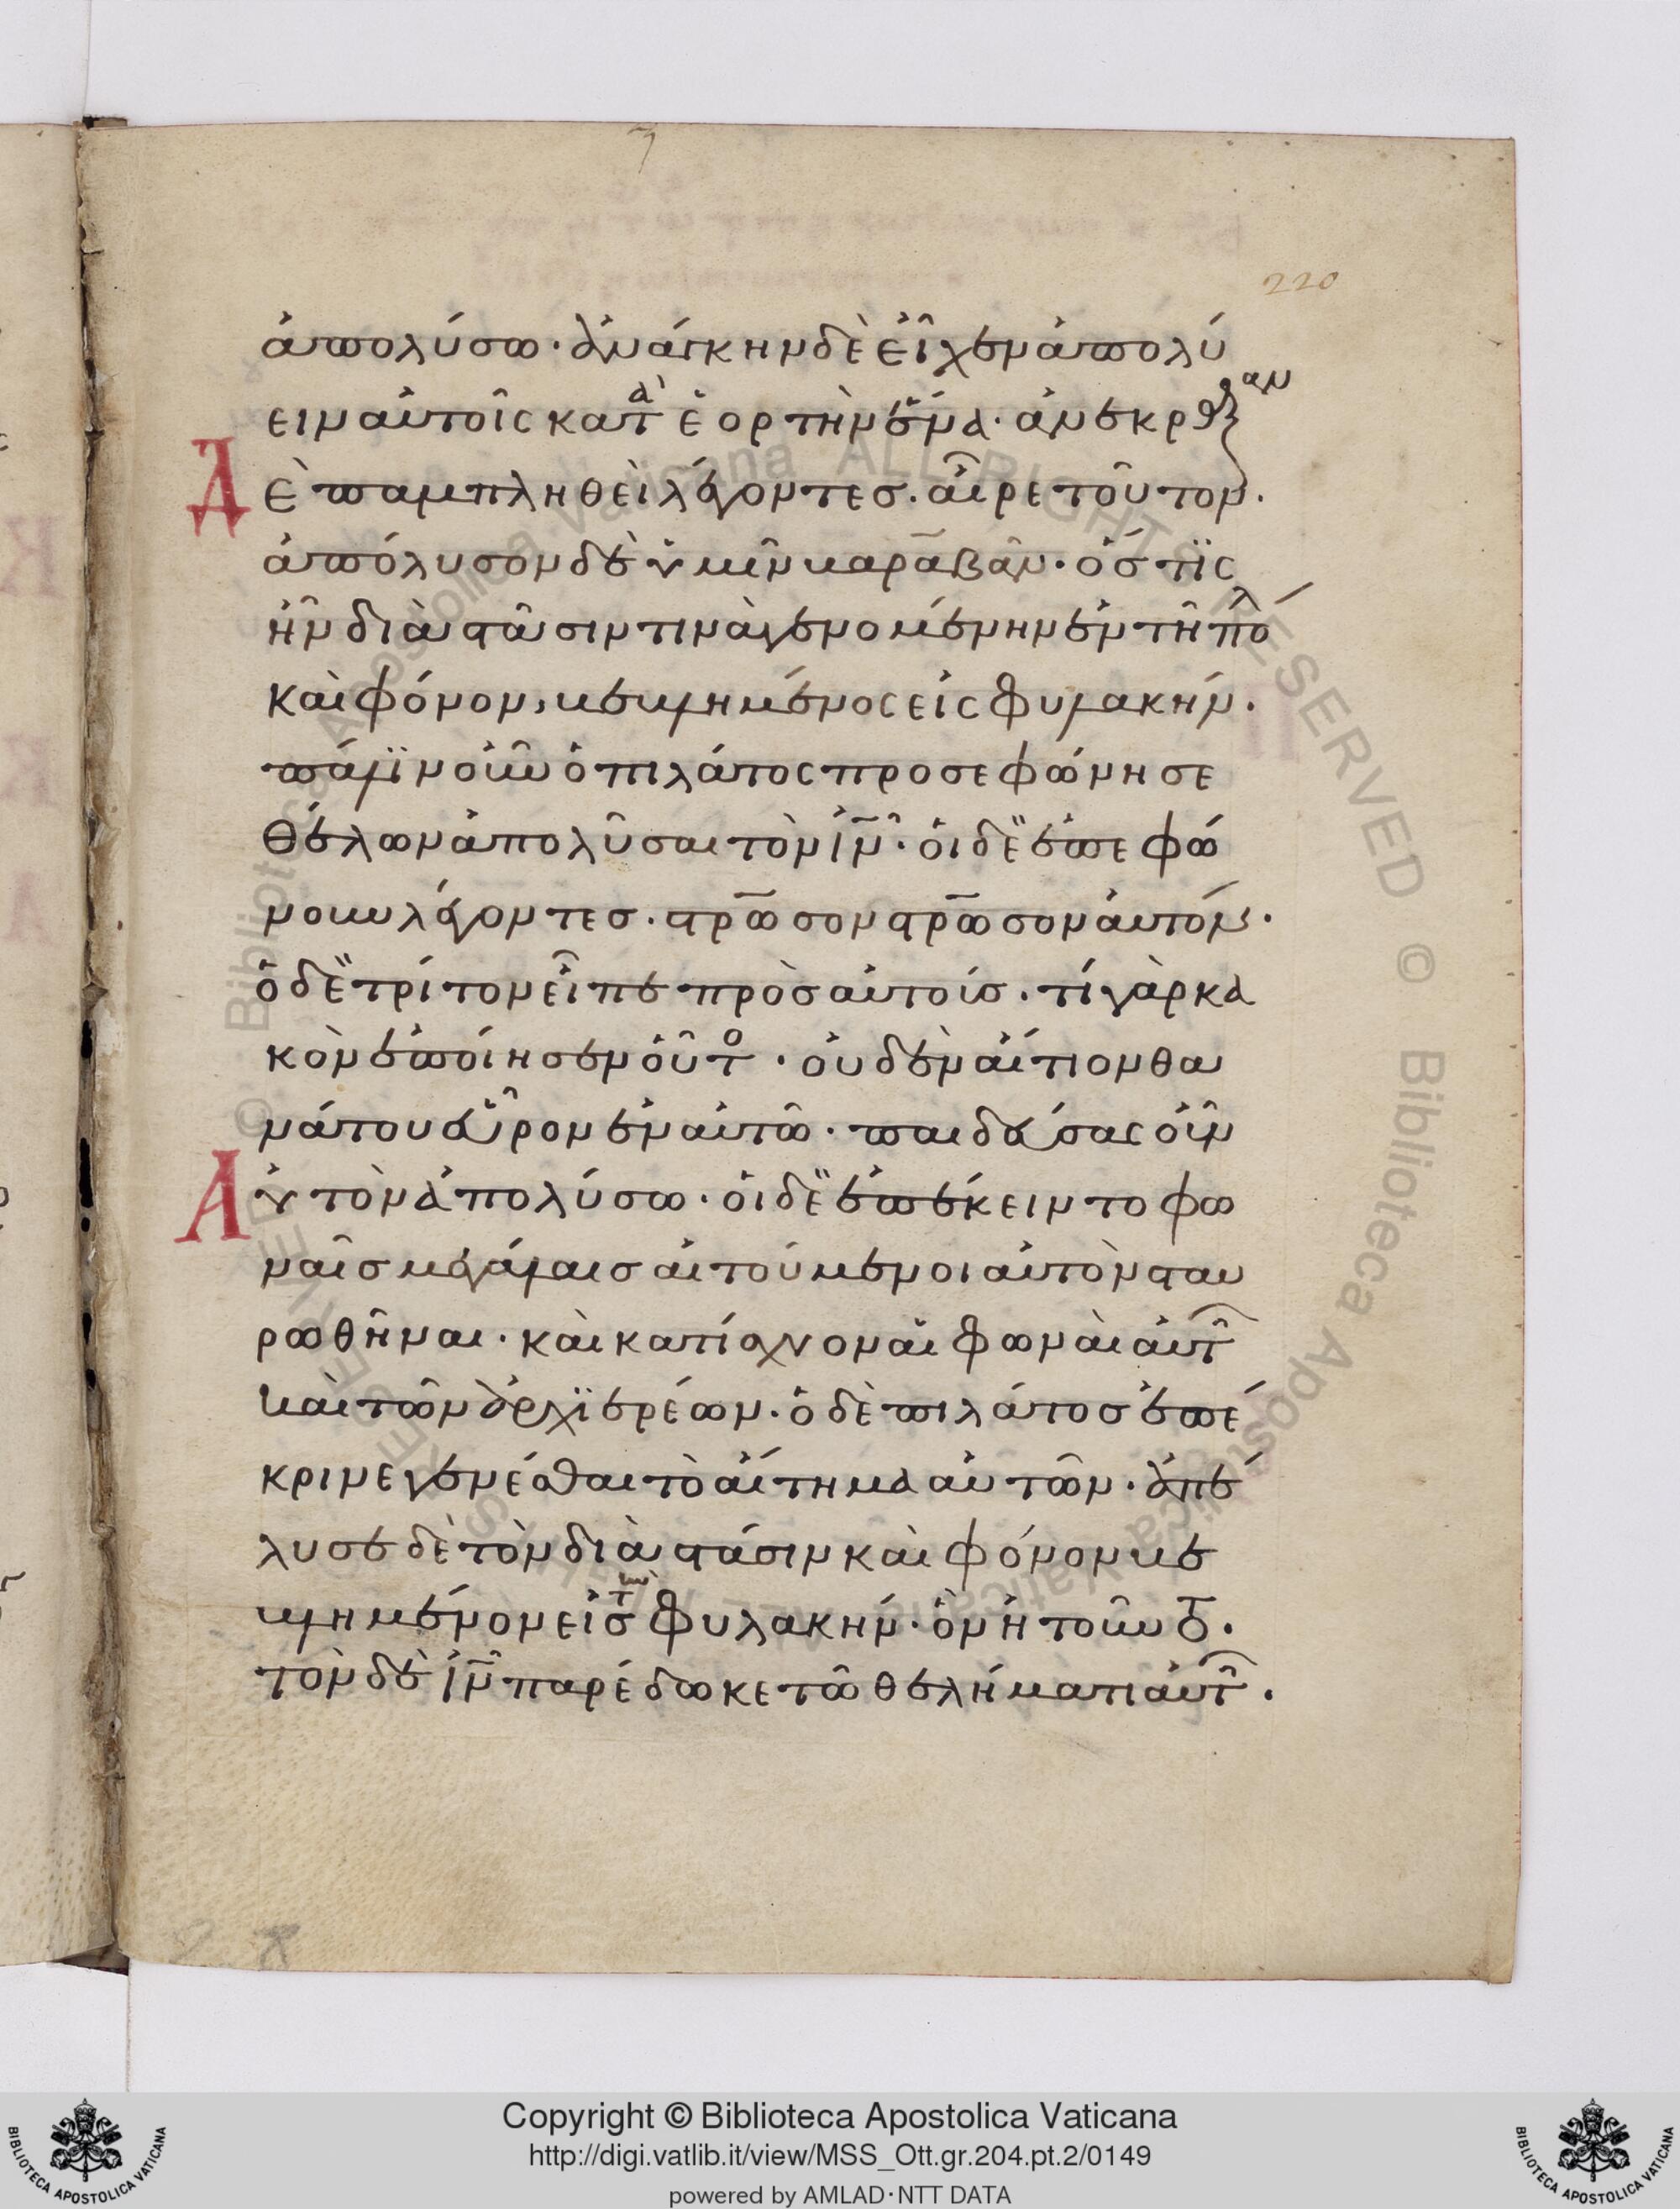 220
ἀπολύσω· ἀνάγκην δὲ εἶχεν ἀπολύ
ειν αὐτοῖς κατὰ ἑορτὴν ἕνα· ἀνέκραξαν
Δ
ὲ παμπληθεὶ λέγοντες· αἶρε τοῦτον·
ἀπόλυσον δὲ ἡμῖν βαραβᾶν· ὅστϊς
ἦν διὰ στάσιν τινὰ γενομένην ἐν τῆ πόλ
καὶ φόνον, βεβλημένος εἰς φυλακήν·
πάλϊν οὖν ὁ πιλάτος προσεφώνησε
θέλων ἀπολῦσαι τὸν ιν· οἱ δὲ ἐπεφώ
νουν λέγοντες· στρωσον στρωσον αὐτόν·
ὁ δὲ τρίτον εἶπε πρὸς αὐτούς· τί γὰρ κα
κὸν ἐποίησεν οὗτο· οὐδὲν αἴτιον θα
νάτου εὗρον ἐν αὐτῶ· παιδεύσας οὖν
Α
ὐτὸν ἀπολύσω· οἱ δὲ ἐπέκειντο φω
ναῖς μεγάλαις αἰτούμενοι αὐτὸν σταυ
ρωθῆναι· καὶ κατίσχυον αἱ φωναὶ αὐτ
καὶ τῶν ἀρχϊερέων· ὁ δὲ πιλάτος ἐπέ
κρινε γενέσθαι τὸ αἴτημα αὐτῶν· ἀπέ
λυσε δὲ τὸν διὰ στάσιν καὶ φόνον βε
βλημένον εἰς τὴν φυλακήν· ὃν ἠτοῦντο·
τὸν δὲ ιν παρέδωκε τῶ θελήματι αὐτ·
© Biblioteca Apostolica Vaticana ALL RIGHTS RESERVED © Biblioteca Apostolica Vaticana ALL RIGHTS RESERVED
Copyright © Biblioteca Apostolica Vaticana
http://digi.vatlib.it/view/MSS_Ott.gr.204.pt.2/0149
powered by AMLAD·NTT DATA
BIBLIOTECA APOSTOLICA VATICANA
BIBLIOTECA APOSTOLICA VATICANA